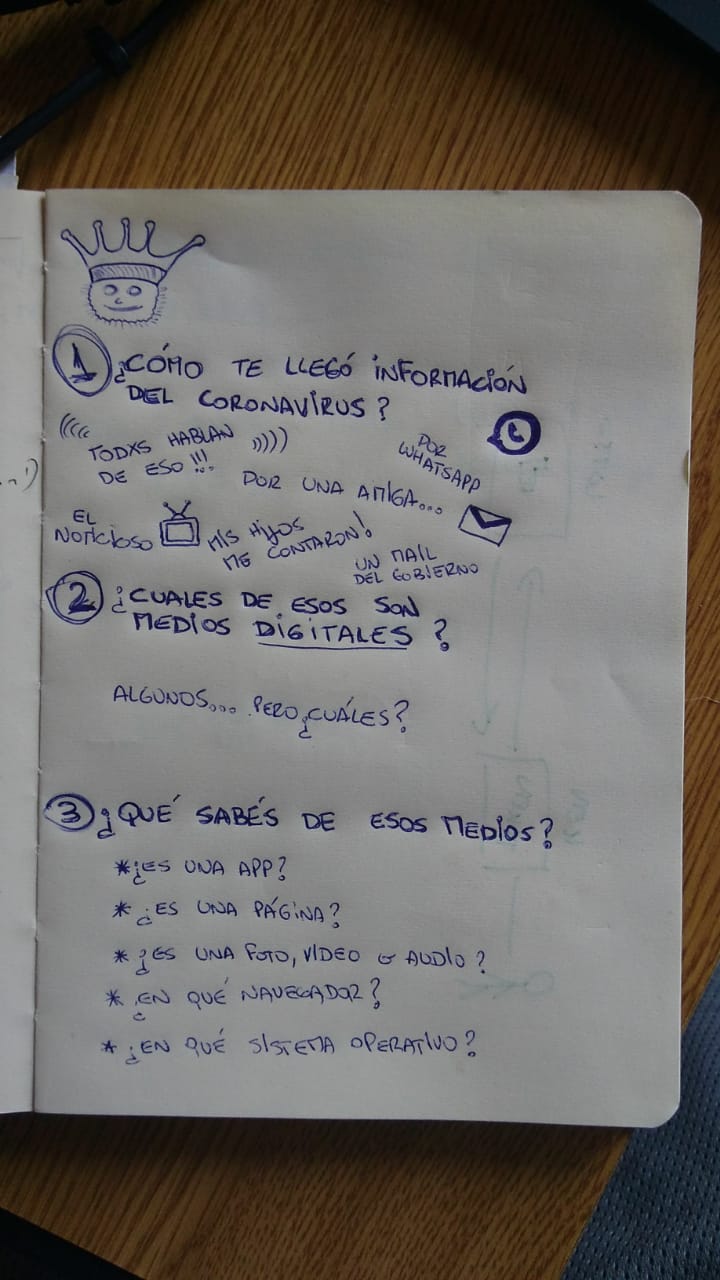 1 ¿CÓMO TE LLEGÓ INFORMACIÓN
DEL CORONAVIRUS?
TODXS HABLAN
DE ESO!!!
POR
WHATSAPP
POR UNA AMIGA...
EL
NOTICIOSO
MIS HIJOS
ME CONTARON!
UN MAIL
DEL GOBIERNO
2 ¿CUALES DE ESOS SON
MEDIOS DIGITALES?
ALGUNOS... PERO ¿CUÁLES?
3 ¿QUÉ SABÉS DE ESOS MEDIOS?
* ¿ES UNA APP?
* ¿ES UNA PÁGINA?
* ¿ES UNA FOTO, VIDEO o AUDIO?
* ¿EN QUÉ NAVEGADOR?
* ¿EN QUÉ SISTEMA OPERATIVO?